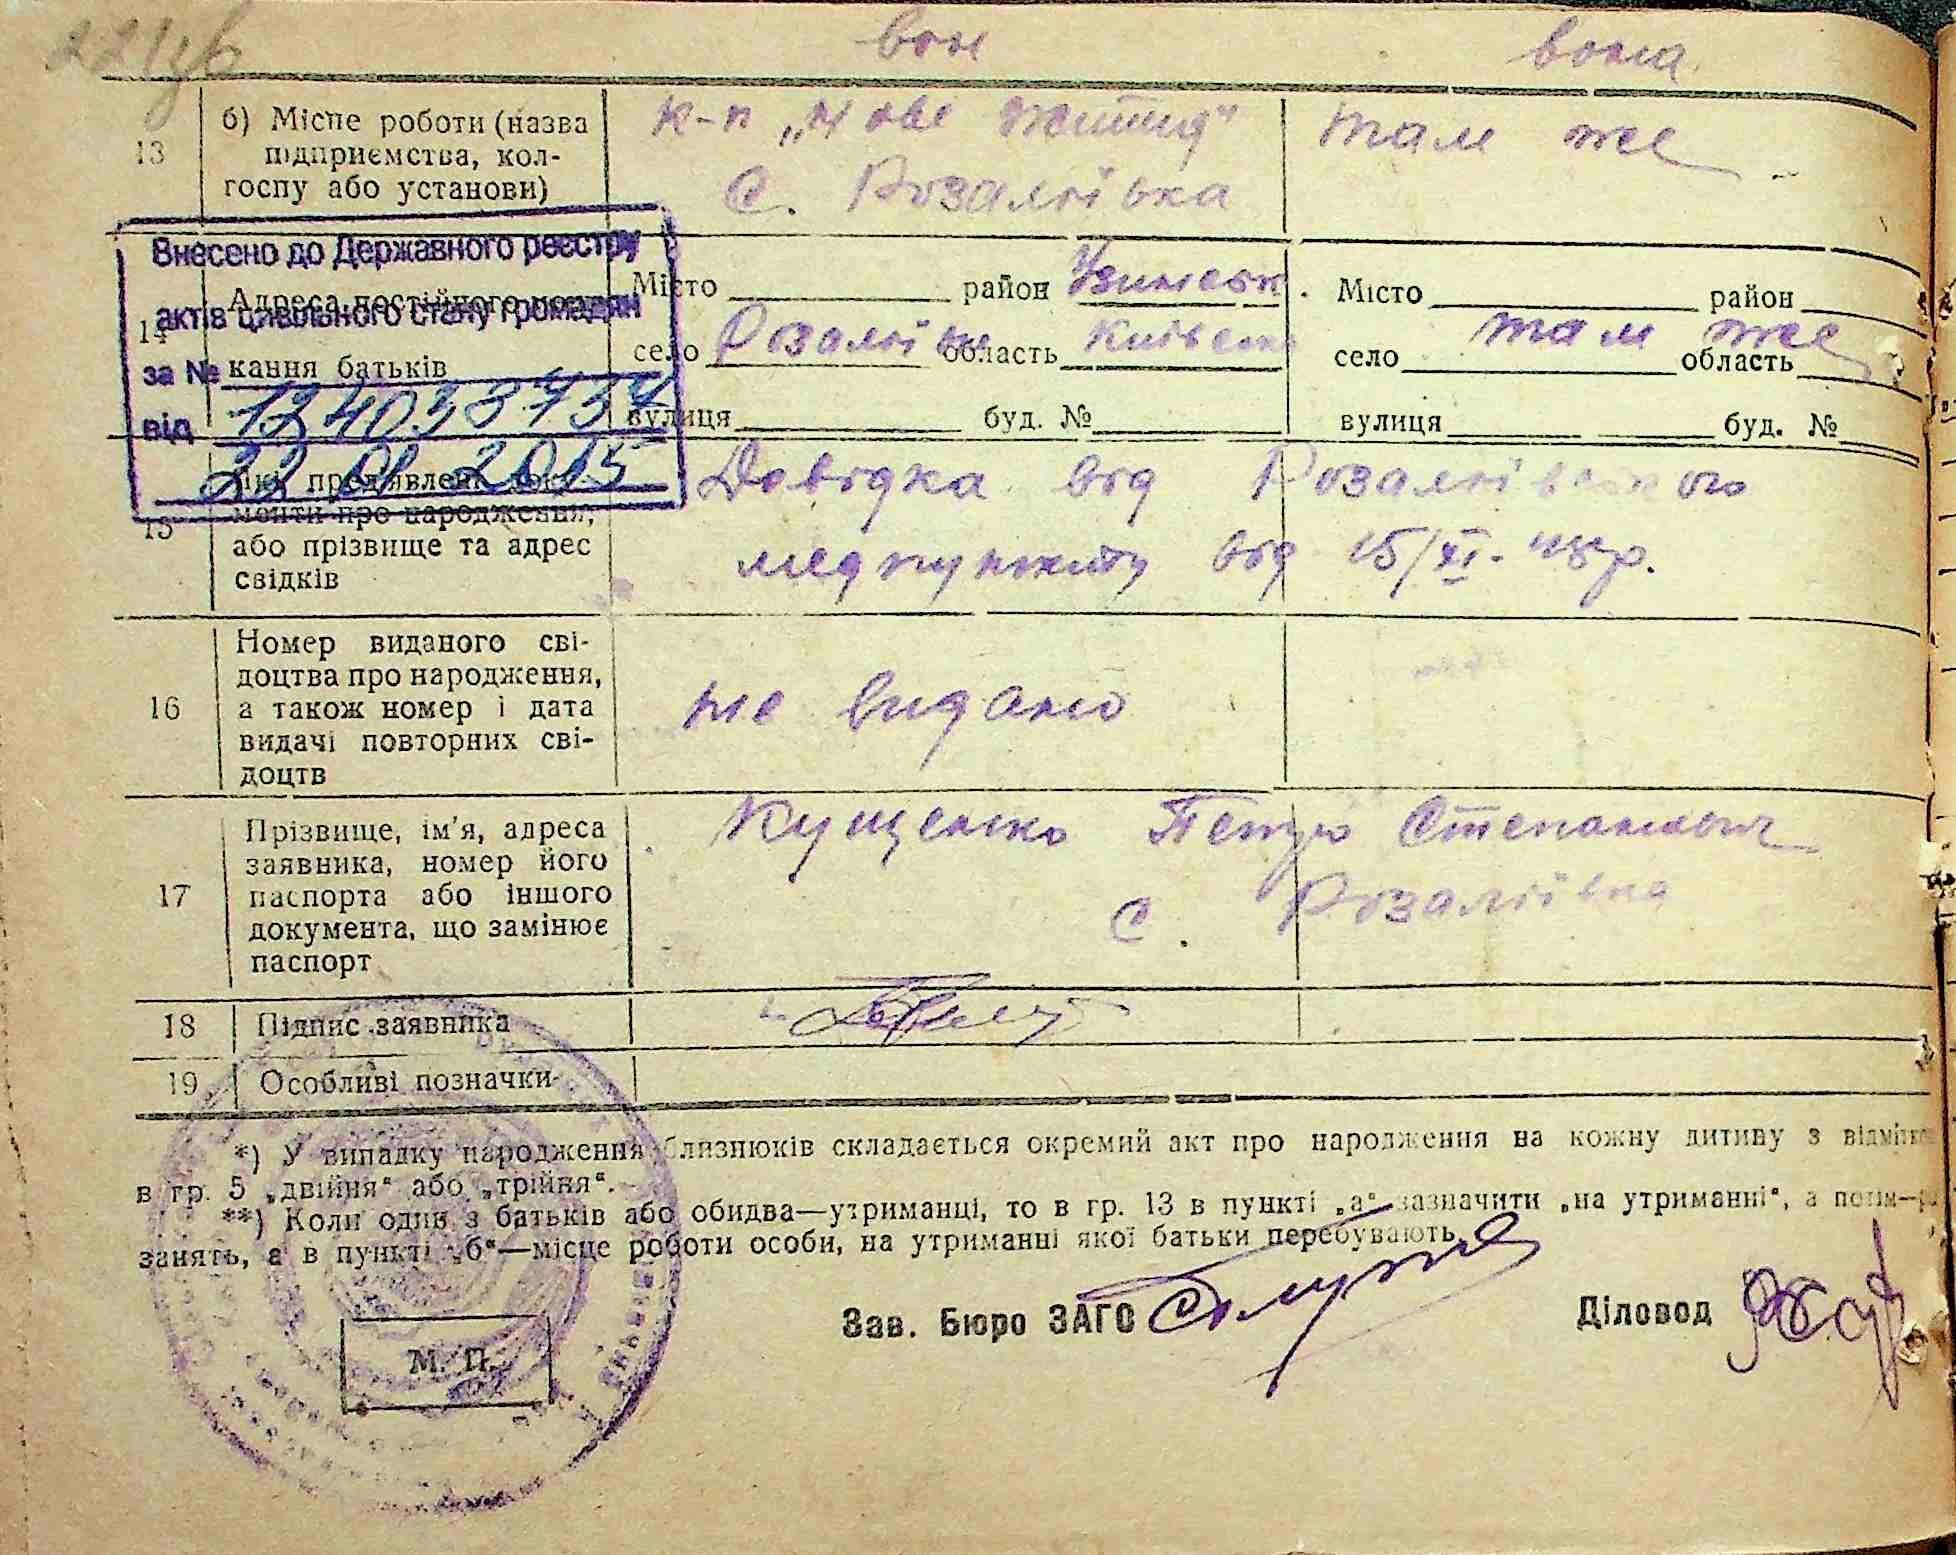 він вона
13 б) Місце роботи (назва підприємства, кол-
госпу або установи)
к-п „Нове життя" там же
с. Розаліївка
Внесено до Державного реєстру
актів цивільного стану громадян
за №
від
22 01 2015
14 Адреса постійного
кання батьків
Місто район Узинськ. Місто район
село Розаліївка область Київська село там же область
вулиця буд. № вулиця буд. №
15
або прізвище та адрес
свідків
Довідка від Розаліївського
медпункту від 15/XI-
16 Номер виданого сві-
доцтва про народження,
а також номер і дата
видачі повторних сві-
доцтв
не видано
17 Прізвище, ім'я, адреса
заявника, номер його
паспорта або іншого
документа, що замінює
паспорт
Кущенко Петро Степанович
с. Розаліївка
18 Підпис заявника
19 Особливі позначки
*) У випадку народження близнюків складається окремий акт про народження на кожну дитину з
в гр. 5 „двійня" або „трійня".
**) Коли один з батьків або обидва—утриманці, то в гр. 13 в пункті „а" зазначити „на утриманні", а потім—
занять, а в пункті „б"—місце роботи особи, на утриманні якої батьки перебувають.
Зав. Бюро ЗАГС Діловод
М. П.